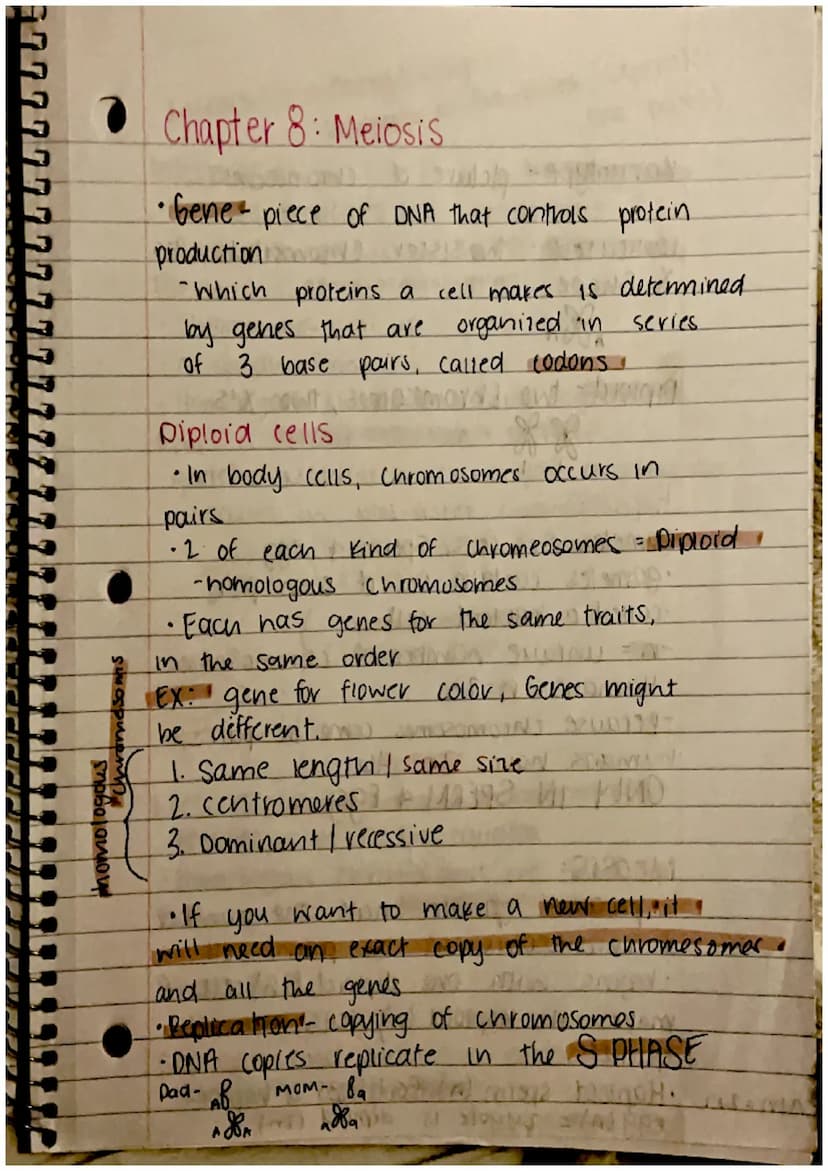 Chapter 8: Meiosis
• Gene - piece of DNA that controls protein
production
- Which proteins a cell makes is determined
by genes that are organized in series
of 3 base pairs, called codons
Diploid cells
• In body cells, chromosomes occurs in
pairs
• 2 of each kind of chromeosomes = Diploid
- homologous chromosomes
• Each has genes for the same traits,
in the same order
EX: gene for flower color, Genes might
be different.
homologous
chromosomes
1. Same length / same size
2. centromeres
3. Dominant / recessive
• If you want to make a new cell, it
will need an exact copy of the chromesomes
and all the genes
• Replication - copying of chromosomes
• DNA copies replicate in the S PHASE
Dad- A mom- a
A A A a